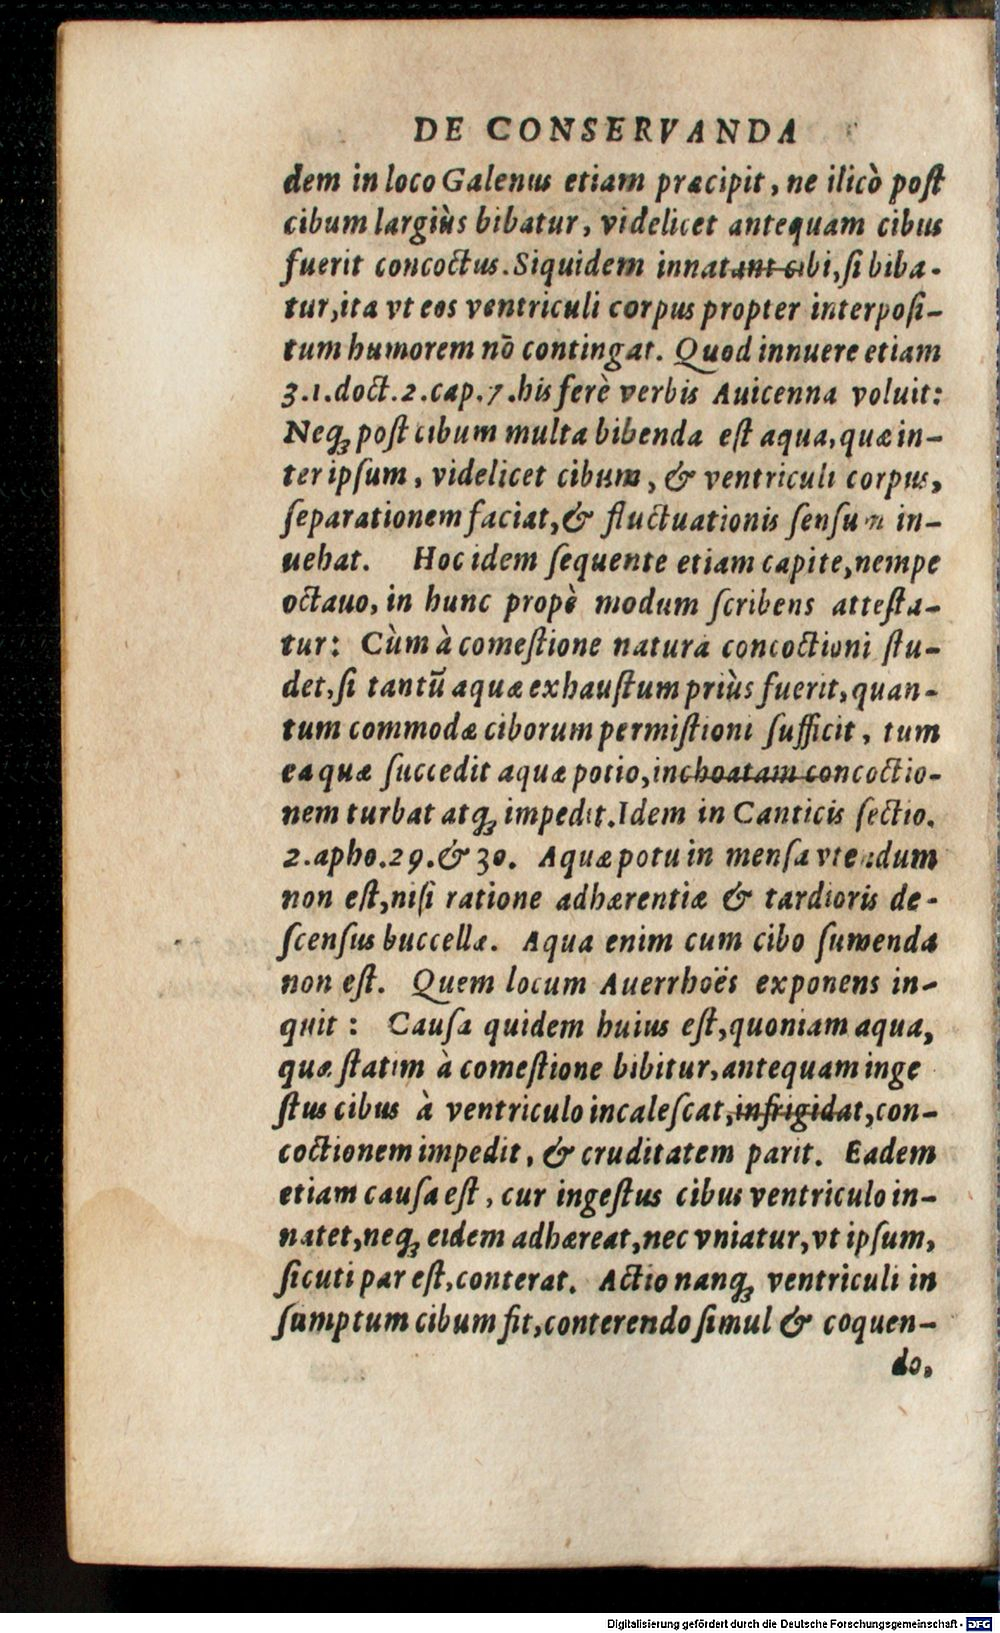 DE CONSERVANDA
dem in loco Galenus etiam præcipit, ne ilicò poſt
cibum largiùs bibatur, videlicet antequam cibus
fuerit concoctus. Siquidem innatant cibi, ſi biba-
tur, ita vt eos ventriculi corpus propter interpoſi-
tum humorem nō contingat. Quod innuere etiam
3.1.doct.2.cap.7.his ferè verbis Auicenna voluit:
Neqꝫ poſt cibum multa bibenda eſt aqua, quæ in-
ter ipſum, videlicet cibum, & ventriculi corpus,
ſeparationem faciat, & fluctuationis ſenſum in-
uehat. Hoc idem ſequente etiam capite, nempe
octauo, in hunc propè modum ſcribens atteſta-
tur: Cùm à comeſtione natura concoctioni ſtu-
det, ſi tantū aquæ exhauſtum priùs fuerit, quan-
tum commodæ ciborum permiſtioni ſufficit, tum
ea quæ ſuccedit aquæ potio, inchoatam concoctio-
nem turbat atqꝫ impedit. Idem in Canticis ſectio.
2.apho.29.& 30. Aquæ potu in menſa vtendum
non eſt, niſi ratione adhærentiæ & tardioris de-
ſcenſus buccellæ. Aqua enim cum cibo ſumenda
non eſt. Quem locum Auerrhoës exponens in-
quit: Cauſa quidem huius eſt, quoniam aqua,
quæ ſtatim à comeſtione bibitur, antequam inge
ſtus cibus à ventriculo incaleſcat, infrigidat, con-
coctionem impedit, & cruditatem parit. Eadem
etiam cauſa eſt, cur ingeſtus cibus ventriculo in-
natet, neqꝫ eidem adhæreat, nec vniatur, vt ipſum,
ſicuti par eſt, conterat. Actio nanqꝫ ventriculi in
ſumptum cibum fit, conterendo ſimul & coquen-
do,
Digitalisierung gefördert durch die Deutsche Forschungsgemeinschaft - DFG